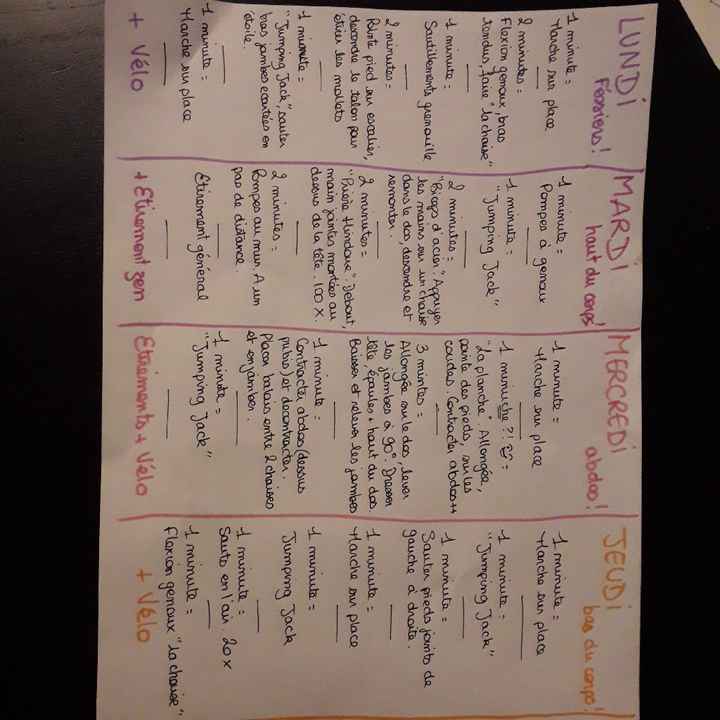 LUNDI
Fessiers!
1 minute =
Marche sur place
2 minutes =
Flexion genoux, bras
tendus, faire "la chaise"
1 minute =
Sautillements grenouille
2 minutes =
Pointe pied sur escalier,
descendre le talon pour
étirer les mollets
1 minute =
"Jumping Jack", sauter
bras jambes écartées en
étoile.
1 minute =
Marche sur place
+ Vélo
MARDI
haut du corps!
1 minute =
Pompes à genoux
1 minute =
"Jumping Jack"
2 minutes =
"Biceps d'acier". Appuyer
les mains sur un chaise
dans le dos, descendre et
remonter.
2 minutes =
"Prière Hindoue". Debout,
main jointes montées au
dessus de la tête. 100 x.
2 minutes =
Pompes au mur. A un
pas de distance.
Étirement général
+ Étirement zen
MERCREDI
abdos!
1 minute =
Marche sur place
1 minuche ?! =
"La planche". Allongée,
pointe des pieds, sur les
coudes. Contracter abdos++
3 mintes =
Allongée sur le dos, lever
les jambes à 90°. Dresser
tête épaules + haut du dos
Baisser et relever les jambes
1 minute =
Contracter abdos (dessus
pubis) et decontracter.
Placer balais entre 2 chaises
et enjamber.
1 minute =
"Jumping Jack"
Étirements + Vélo
JEUDI
bas du corps!
1 minute =
Marche sur place
1 minute =
"Jumping Jack"
1 minute =
Sauter pieds joints de
gauche à droite.
1 minute =
Marche sur place
1 minute =
Jumping Jack
1 minute =
Sauts en l'air. 20 x
1 minute =
Flexion genoux "la chaise"
+ Vélo